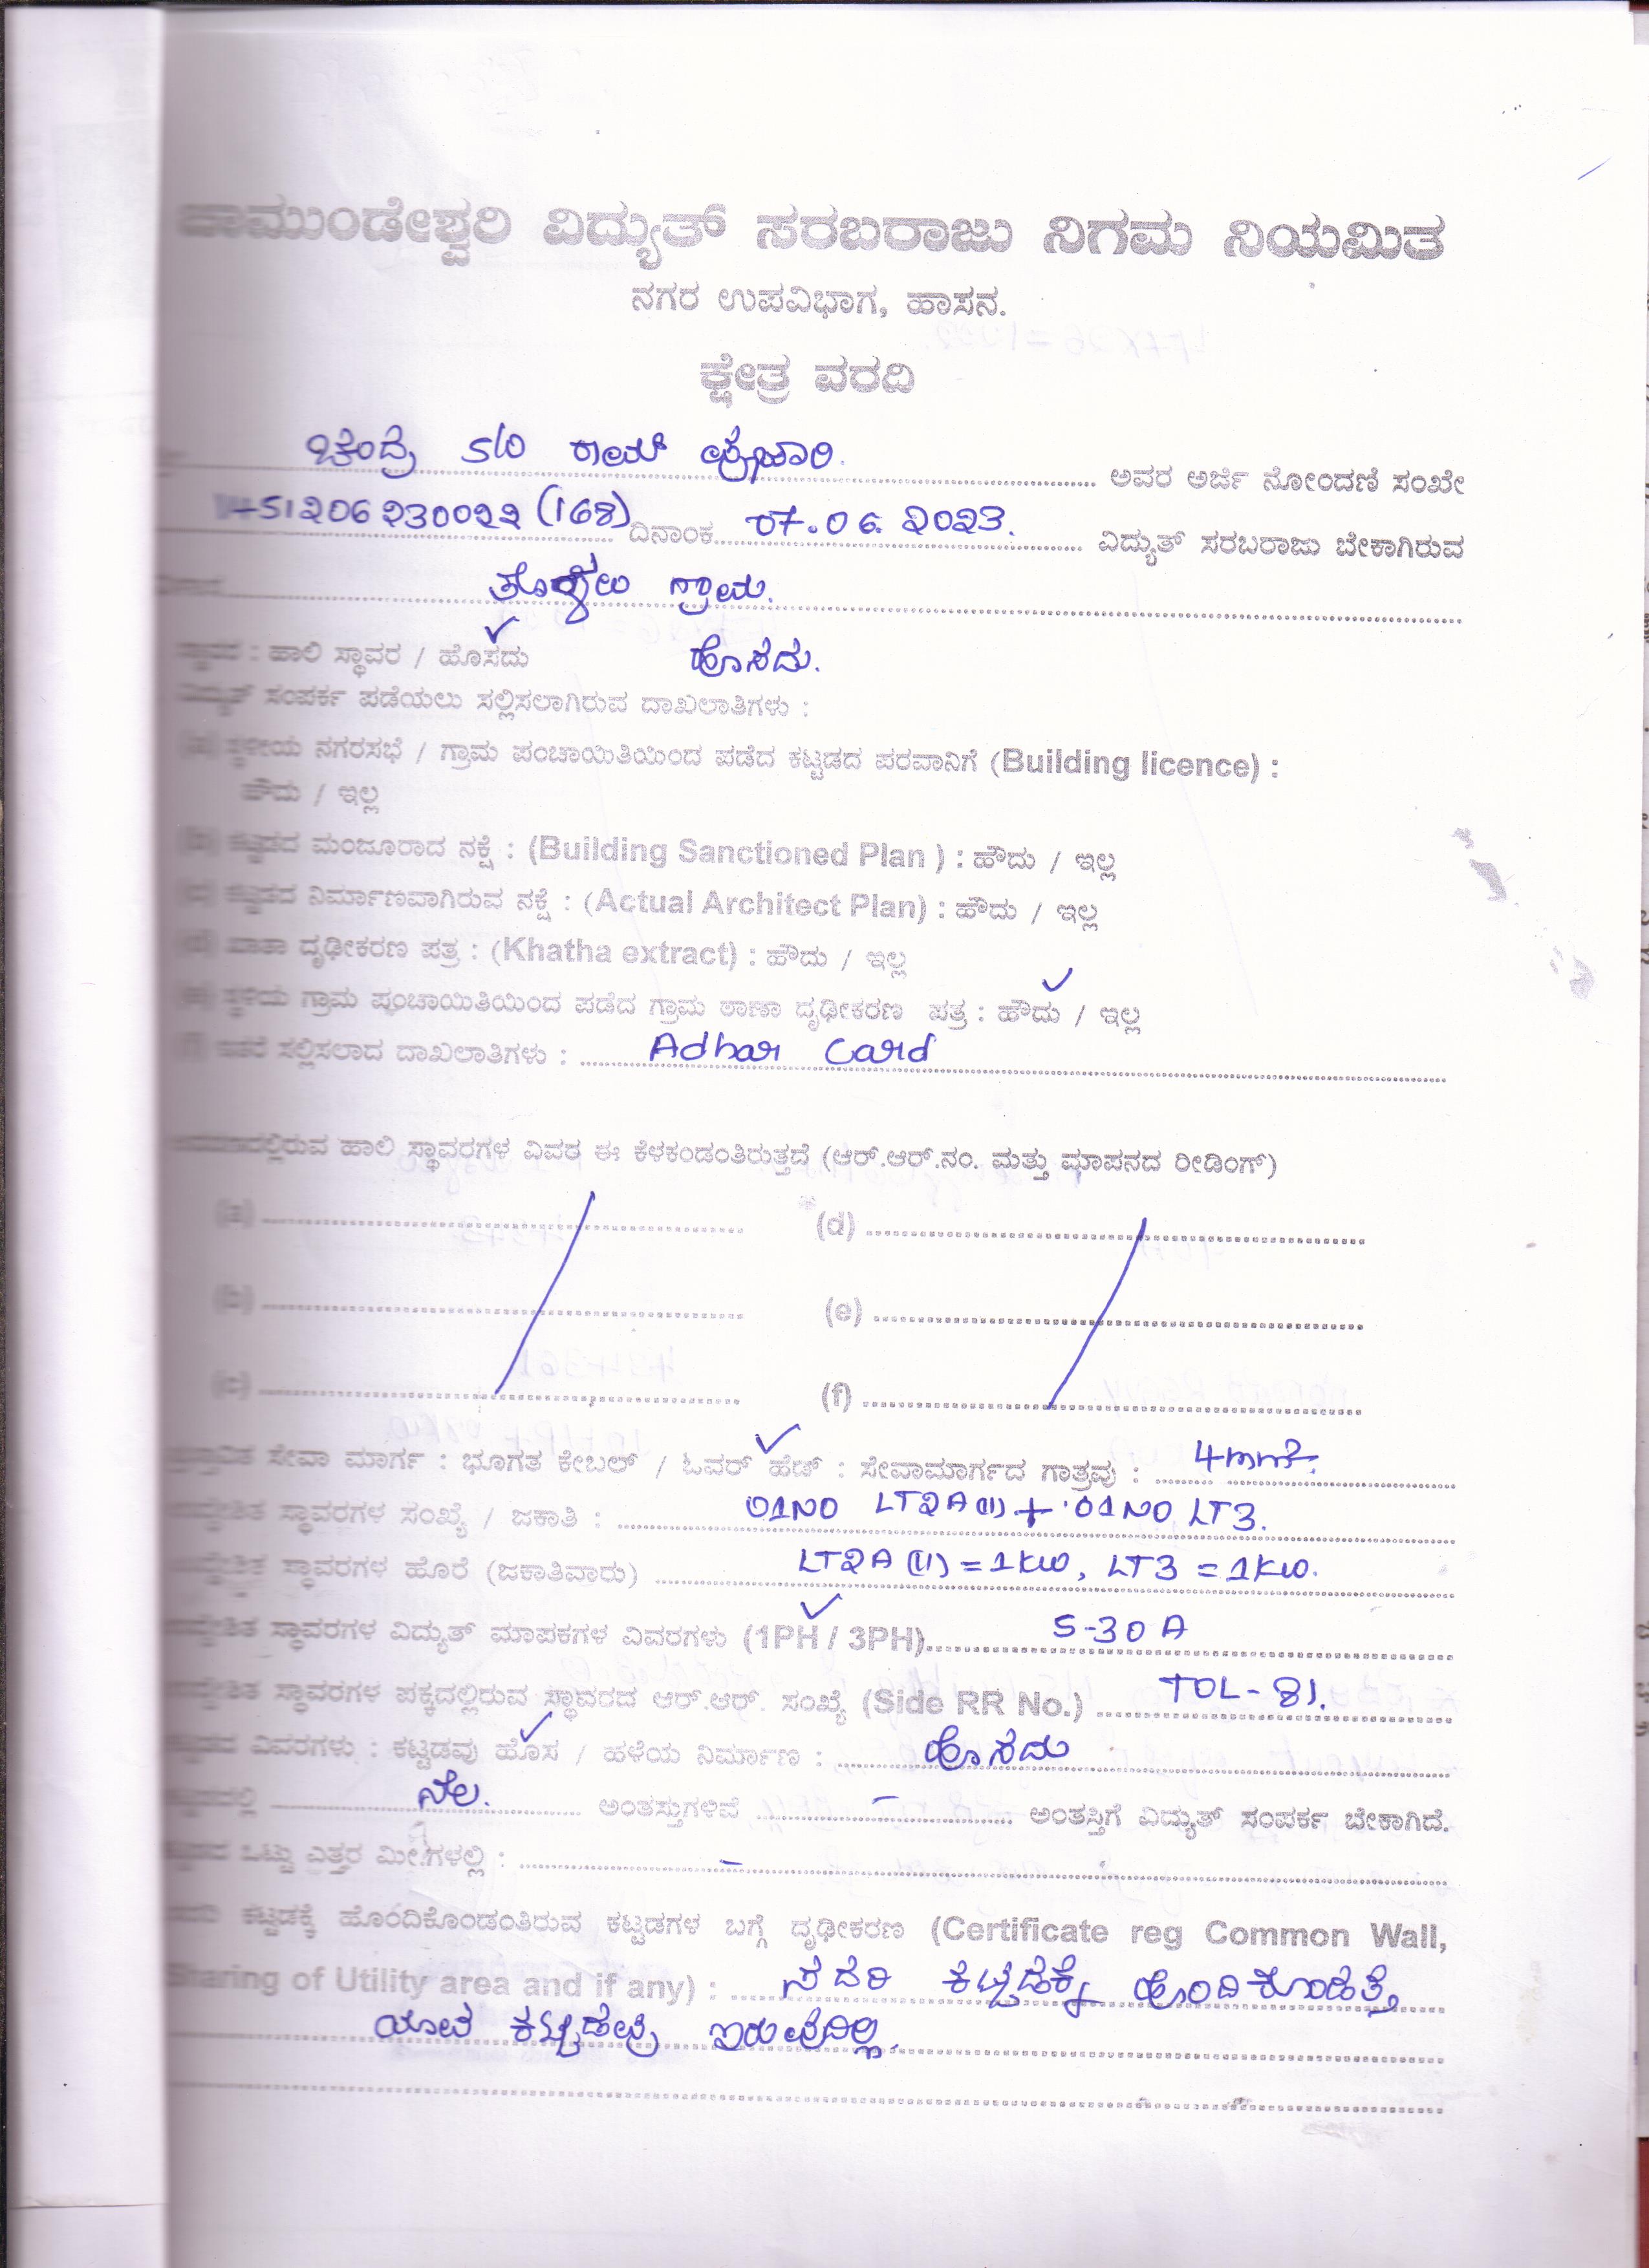 ಚಾಮುಂಡೇಶ್ವರಿ ವಿದ್ಯುತ್ ಸರಬರಾಜು ನಿಗಮ ನಿಯಮಿತ
ನಗರ ಉಪವಿಭಾಗ, ಹಾಸನ.
ಕ್ಷೇತ್ರ ವರದಿ
ಚಂದ್ರೆ S/O ರಾಮ್ ಪೂಜಾರಿ. ಅವರ ಅರ್ಜಿ ನೋಂದಣಿ ಸಂಖೇ
51206230022 (168) ದಿನಾಂಕ 07.06.2023. ವಿದ್ಯುತ್ ಸರಬರಾಜು ಬೇಕಾಗಿರುವ
ಗ್ರಾಮ.
ಸ್ಥಾವರ : ಹಾಲಿ ಸ್ಥಾವರ / ಹೊಸದು ಹೊಸದು.
ವಿದ್ಯುತ್ ಸಂಪರ್ಕ ಪಡೆಯಲು ಸಲ್ಲಿಸಲಾಗಿರುವ ದಾಖಲಾತಿಗಳು :
(a) ಸ್ಥಳೀಯ ನಗರಸಭೆ / ಗ್ರಾಮ ಪಂಚಾಯಿತಿಯಿಂದ ಪಡೆದ ಕಟ್ಟಡದ ಪರವಾನಿಗೆ (Building licence) :
ಹೌದು / ಇಲ್ಲ
(b) ಕಟ್ಟಡದ ಮಂಜೂರಾದ ನಕ್ಷೆ : (Building Sanctioned Plan ) : ಹೌದು / ಇಲ್ಲ
(c) ಕಟ್ಟಡದ ನಿರ್ಮಾಣವಾಗಿರುವ ನಕ್ಷೆ : (Actual Architect Plan) : ಹೌದು / ಇಲ್ಲ
(d) ಖಾತಾ ದೃಢೀಕರಣ ಪತ್ರ : (Khatha extract) : ಹೌದು / ಇಲ್ಲ
(e) ಸ್ಥಳಿಯ ಗ್ರಾಮ ಪಂಚಾಯಿತಿಯಿಂದ ಪಡೆದ ಗ್ರಾಮ ಠಾಣಾ ದೃಢೀಕರಣ ಪತ್ರ : ಹೌದು / ಇಲ್ಲ
(f) ಇತರೆ ಸಲ್ಲಿಸಲಾದ ದಾಖಲಾತಿಗಳು : Adhar Card
ಹಾಲಿ ಸ್ಥಾವರಗಳ ವಿವರ ಈ ಕೆಳಕಂಡಂತಿರುತ್ತದೆ (ಆರ್.ಆರ್.ನಂ. ಮತ್ತು ಮಾಪನದ ರೀಡಿಂಗ್)
(a) (d)
(b) (e)
(c) (f)
ಸೇವಾ ಮಾರ್ಗ : ಭೂಗತ ಕೇಬಲ್ / ಓವರ್ ಹೆಡ್ : ಸೇವಾಮಾರ್ಗದ ಗಾತ್ರವು : 4mm².
ಸ್ಥಾವರಗಳ ಸಂಖ್ಯೆ / ಜಕಾತಿ : 01NO LT2A(II) + 01NO LT3.
ಸ್ಥಾವರಗಳ ಹೊರೆ (ಜಕಾತಿವಾರು) LT2A (II) = 1KW, LT3 = 1KW.
ಸ್ಥಾವರಗಳ ವಿದ್ಯುತ್ ಮಾಪಕಗಳ ವಿವರಗಳು (1PH / 3PH) 5-30 A
ಸ್ಥಾವರಗಳ ಪಕ್ಕದಲ್ಲಿರುವ ಸ್ಥಾವರದ ಆರ್.ಆರ್. ಸಂಖ್ಯೆ (Side RR No.) TOL-81.
ವಿವರಗಳು : ಕಟ್ಟಡವು ಹೊಸ / ಹಳೆಯ ನಿರ್ಮಾಣ : ಹೊಸದು
ನೆಲ. ಅಂತಸ್ತುಗಳಿವೆ – ಅಂತಸ್ತಿಗೆ ವಿದ್ಯುತ್ ಸಂಪರ್ಕ ಬೇಕಾಗಿದೆ.
ಒಟ್ಟು ಎತ್ತರ ಮೀ.ಗಳಲ್ಲಿ : –
ಕಟ್ಟಡಕ್ಕೆ ಹೊಂದಿಕೊಂಡಂತಿರುವ ಕಟ್ಟಡಗಳ ಬಗ್ಗೆ ದೃಢೀಕರಣ (Certificate reg Common Wall,
Sharing of Utility area and if any) : ಸದರಿ ಕಟ್ಟಡಕ್ಕೆ
ಯಾವ ಇರುವುದಿಲ್ಲ.